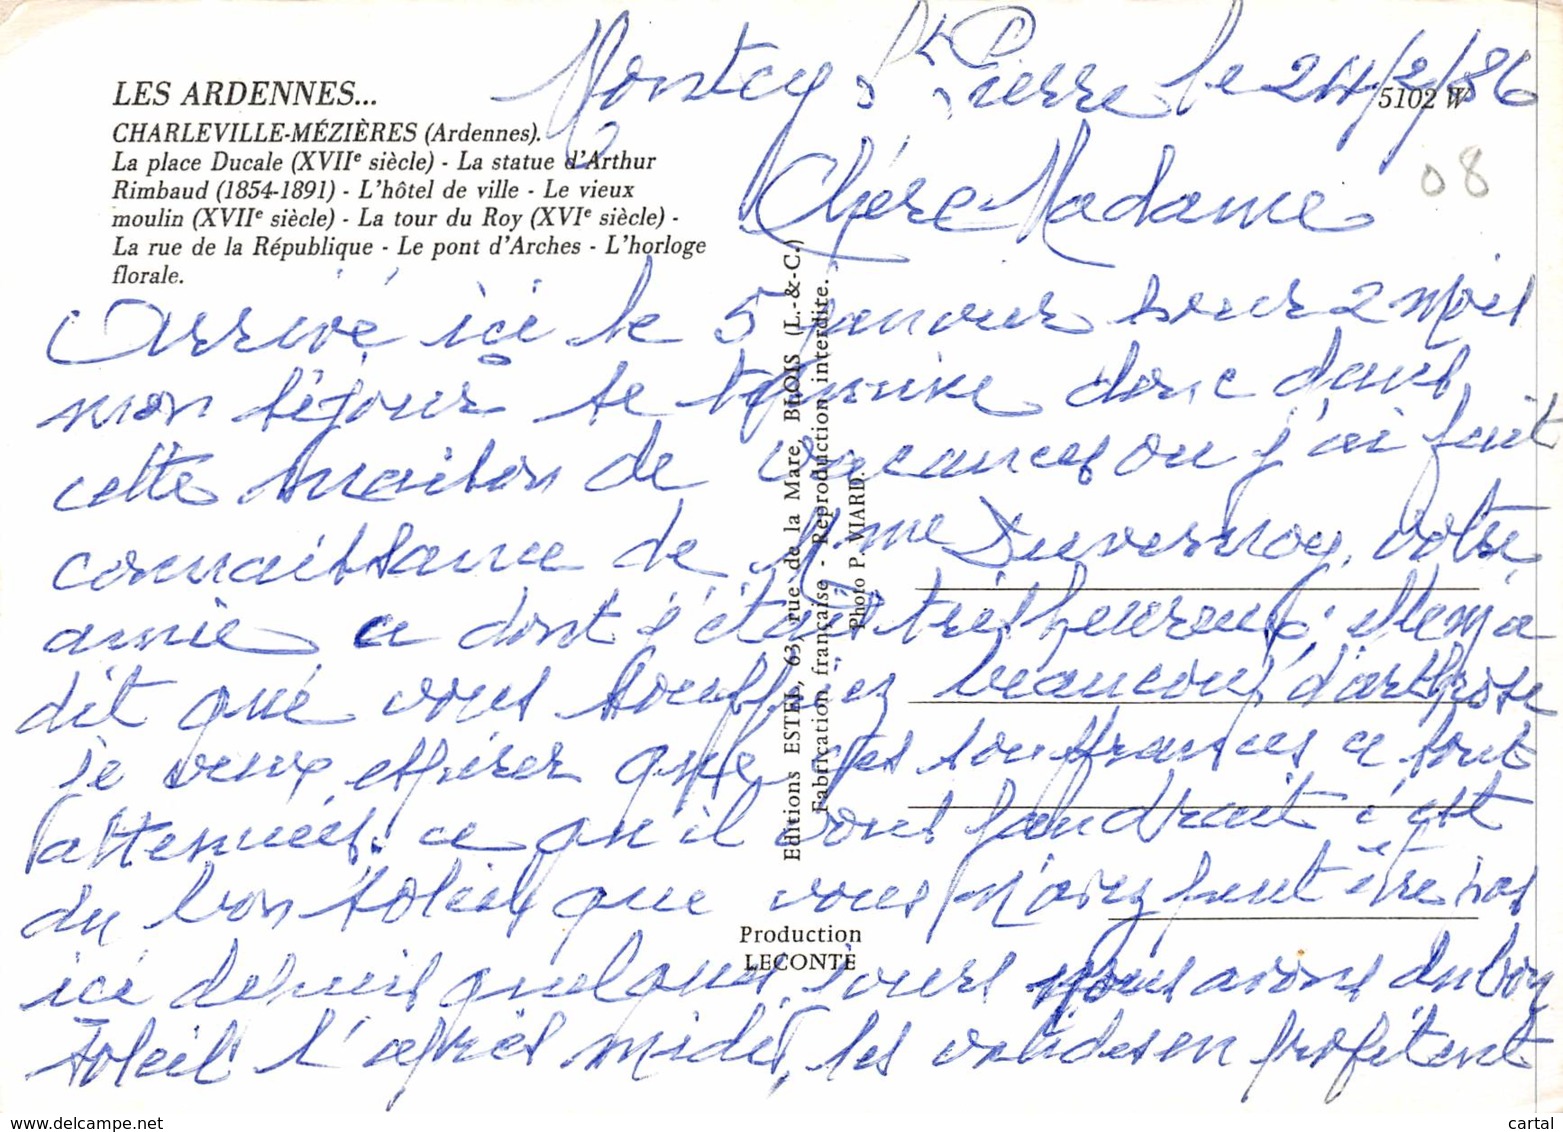 Montcy St Pierre le 24/2/86
LES ARDENNES...
5102 W
CHARLEVILLE-MÉZIÈRES (Ardennes).
La place Ducale (XVIIe siècle) - La statue d'Arthur
Rimbaud (1854-1891) - L'hôtel de ville - Le vieux
moulin (XVIIe siècle) - La tour du Roy (XVIe siècle) -
La rue de la République - Le pont d'Arches - L'horloge
florale.
08
Chère Madame
Arrivé ici le 5 janvier pour 2 mois
mon séjour se termine donc dans
cette maison de vacances ou j'ai fait
connaissance de Mme Duvernoy, votre
amie ce dont j'étais très heureux, elle m'a
dit que vous souffriez beaucoup d'arthrose
je veux espérer que les souffrances se sont
attenuées. ce qu'il vous faudrait c'est
du bon soleil que vous n'avez peut être pas
ici depuis quelques jours nous avons du bon
soleil l'après midi, les valides en profitent
Editions ESTEL, 63, rue de la Mare, BLOIS (L.-&-C.)
Fabrication française - Reproduction interdite.
Photo P. VIARD.
Production
LECONTE
www.delcampe.net
cartal